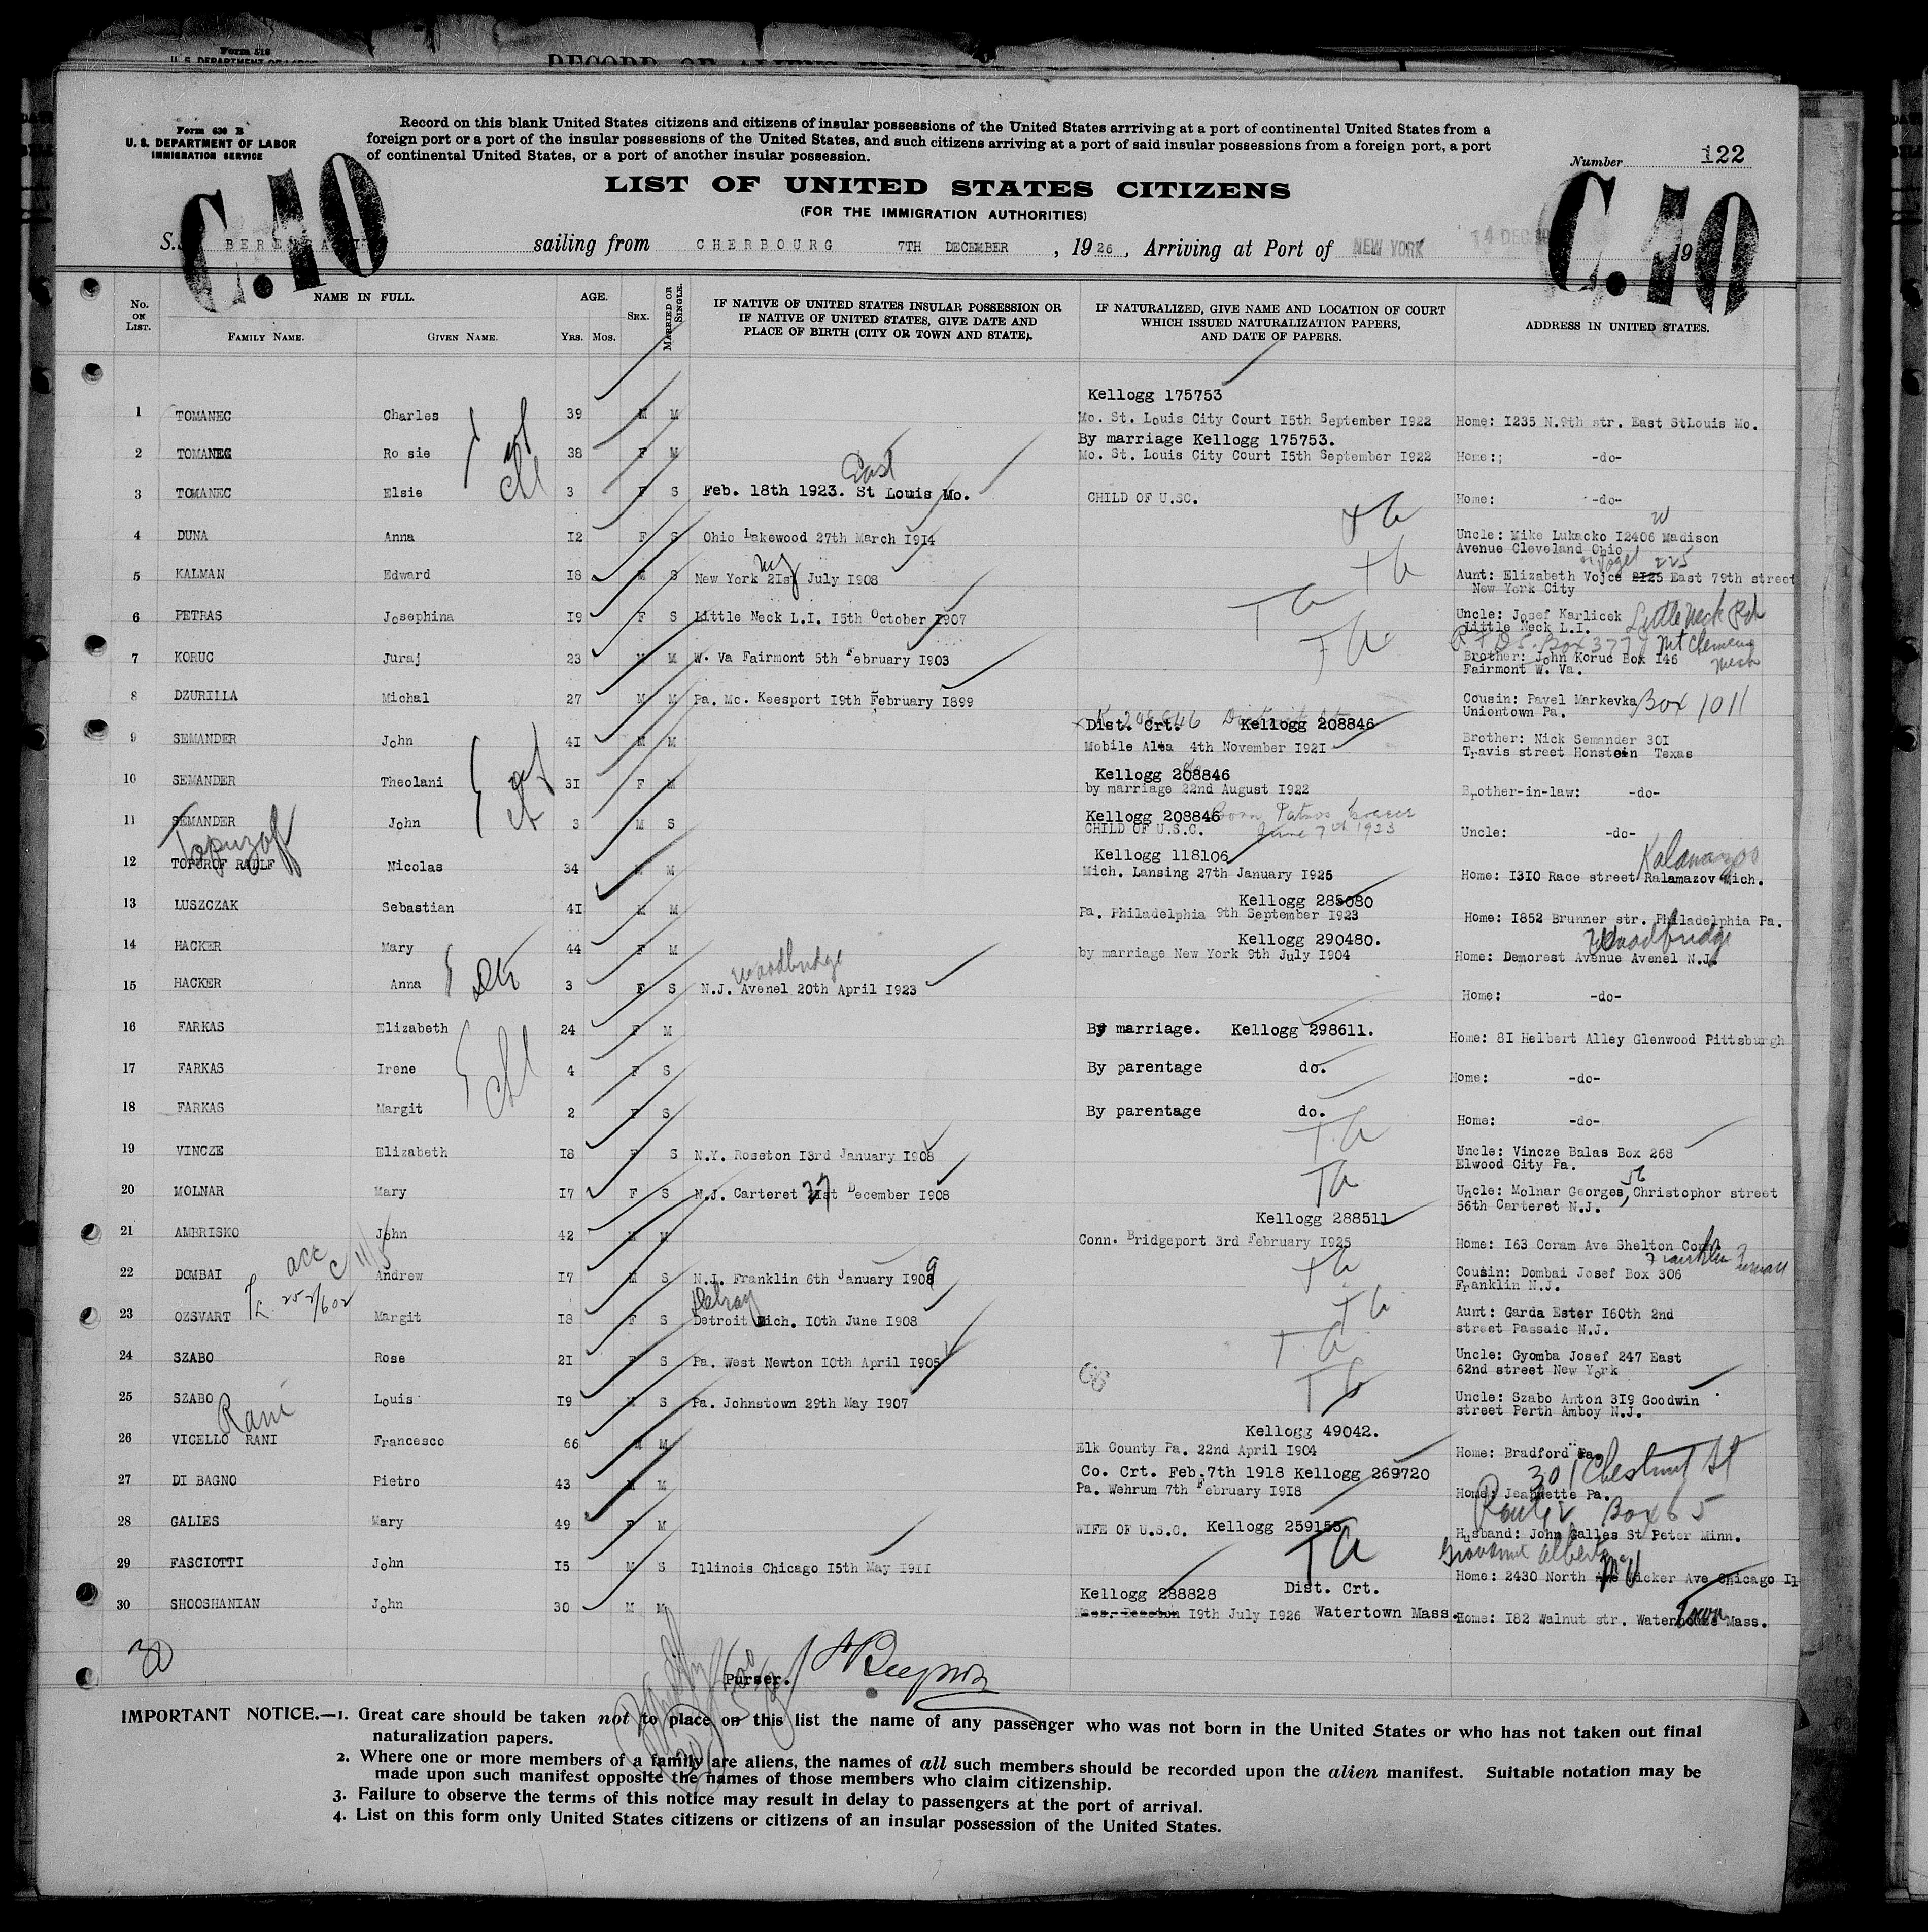 Form 518
U. S. DEPARTMENT OF LABOR
RECORD OF ALIENS
Form 630 B
U. S. DEPARTMENT OF LABOR
IMMIGRATION SERVICE
Record on this blank United States citizens and citizens of insular possessions of the United States arrriving at a port of continental United States from a
foreign port or a port of the insular possessions of the United States, and such citizens arriving at a port of said insular possessions from a foreign port, a port
of continental United States, or a port of another insular possession.
Number 122
LIST OF UNITED STATES CITIZENS
(FOR THE IMMIGRATION AUTHORITIES)
C.10 C.10
S.S. sailing from CHERBOURG 7TH DECEMBER , 1926 , Arriving at Port of NEW YORK 14 DEC 19
No. ON LIST. NAME IN FULL. FAMILY NAME. GIVEN NAME. AGE. YRS. MOS. SEX. MARRIED OR SINGLE. IF NATIVE OF UNITED STATES INSULAR POSSESSION OR IF NATIVE OF UNITED STATES, GIVE DATE AND PLACE OF BIRTH (CITY OR TOWN AND STATE). IF NATURALIZED, GIVE NAME AND LOCATION OF COURT WHICH ISSUED NATURALIZATION PAPERS, AND DATE OF PAPERS. ADDRESS IN UNITED STATES.
Kellogg 175753
1 TOMANEC Charles 39 M M Mo. St. Louis City Court 15th September 1922 Home: 1235 N.9th str. East StLouis Mo.
By marriage Kellogg 175753.
2 TOMANEC Ro sie 38 F M Mo. St. Louis City Court 15th September 1922 Home:; -do-
East
3 TOMANEC Elsie 3 F S Feb. 18th 1923. St Louis Mo. CHILD OF U.SC. Home: -do-
W
4 DUNA Anna 12 F S Ohio Lakewood 27th March 1914 Uncle: Mike Lukacko 12406 Madison
Avenue Cleveland Ohio
NY Vogel 225
5 KALMAN Edward 18 M S New York 21st July 1908 Aunt: Elizabeth Vojce 2125 East 79th street
New York City
6 PETRAS Josephina 19 F S Little Neck L.I. 15th October 1907 Uncle: Josef Karlicek Little Neck
Little Neck L.I.
Box 377 Mt Clemens Mich
7 KORUC Juraj 23 M M W. Va Fairmont 5th February 1903 Brother: John Koruc Box 146
Fairmont W. Va.
8 DZURILLA Michal 27 M M Pa. Mc. Keesport 19th February 1899 Cousin: Pavel Markevka Box 1011
Uniontown Pa.
Dist. Crt. Kellogg 208846
9 SEMANDER John 41 M M Mobile Alea 4th November 1921 Brother: Nick Semander 301
Travis street Honstoin Texas
Kellogg 208846
10 SEMANDER Theolani 31 F M by marriage 22nd August 1922 Brother-in-law: -do-
Kellogg 208846 Born Patmos Greece
11 SEMANDER John 3 M S CHILD OF U.S.C. June 7th 1923 Uncle: -do-
Topuzoff
Kellogg 118106 Kalamazoo
12 TOPUROF RADLF Nicolas 34 M M Mich. Lansing 27th January 1925 Home: 1310 Race street Ralamazov Mich.
Kellogg 285080
13 LUSZCZAK Sebastian 41 M M Pa. Philadelphia 9th September 1923 Home: 1852 Brunner str. Philadelphia Pa.
Kellogg 290480. Woodbridge
14 HACKER Mary 44 F M by marriage New York 9th July 1904 Home: Demorest Avenue Avenel N.J.
Woodbridge
15 HACKER Anna 3 F S N.J. Avenel 20th April 1923 Home: -do-
16 FARKAS Elizabeth 24 F M By marriage. Kellogg 298611. Home: 81 Helbert Alley Glenwood Pittsburgh
17 FARKAS Irene 4 F S By parentage do. Home: -do-
18 FARKAS Margit 2 F S By parentage do. Home: -do-
19 VINCZE Elizabeth 18 F S N.Y. Roseton 13rd January 1908 Uncle: Vincze Balas Box 268
Elwood City Pa.
27 56
20 MOLNAR Mary 17 F S N.J. Carteret 21st December 1908 Uncle: Molnar Georges, Christophor street
56th Carteret N.J.
Kellogg 288511
21 AMBRISKO John 42 M M Conn. Bridgeport 3rd February 1925 Home: 163 Coram Ave Shelton Conn
9 Franklin Furnace
22 DOMBAI Andrew 17 M S N.J. Franklin 6th January 1908 Cousin: Dombai Josef Box 306
Franklin N.J.
Delray
23 OZSVART Margit 18 F S Detroit Mich. 10th June 1908 Aunt: Garda Ester 160th 2nd
street Passaic N.J.
24 SZABO Rose 21 F S Pa. West Newton 10th April 1905 Uncle: Gyomba Josef 247 East
62nd street New York
25 SZABO Louis 19 M S Pa. Johnstown 29th May 1907 Uncle: Szabo Anton 319 Goodwin
street Perth Amboy N.J.
Rani
Kellogg 49042.
26 VICELLO RANI Francesco 66 M M Elk County Pa. 22nd April 1904 Home: Bradford Pa.
Co. Crt. Feb.7th 1918 Kellogg 269720 301 Chestnut St
27 DI BAGNO Pietro 43 M M Pa. Wehrum 7th February 1918 Home: Jeannette Pa.
Box 65
28 GALLES Mary 49 F M WIFE OF U.S.C. Kellogg 259155 Husband: John Galles St Peter Minn.
Giovanni Alberto
29 FASCIOTTI John 15 M S Illinois Chicago 15th May 1911 Home: 2430 North Ave Wicker Ave Chicago Il
Kellogg 288828 Dist. Crt.
30 SHOOSHANIAN John 30 M M Mass. Boston 19th July 1926 Watertown Mass. Home: 182 Walnut str. Waterhouse Mass.
Town
30
Purser.
IMPORTANT NOTICE.—1. Great care should be taken not to place on this list the name of any passenger who was not born in the United States or who has not taken out final
naturalization papers.
2. Where one or more members of a family are aliens, the names of all such members should be recorded upon the alien manifest. Suitable notation may be
made upon such manifest opposite the names of those members who claim citizenship.
3. Failure to observe the terms of this notice may result in delay to passengers at the port of arrival.
4. List on this form only United States citizens or citizens of an insular possession of the United States.